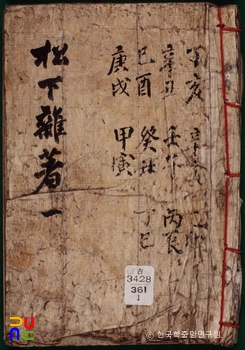 丁亥
辛丑 壬午 丙辰
己酉 癸丑 丁巳
庚戌 甲寅
松下雜著 一
古
3428
361
1
ⓒ한국학중앙연구원